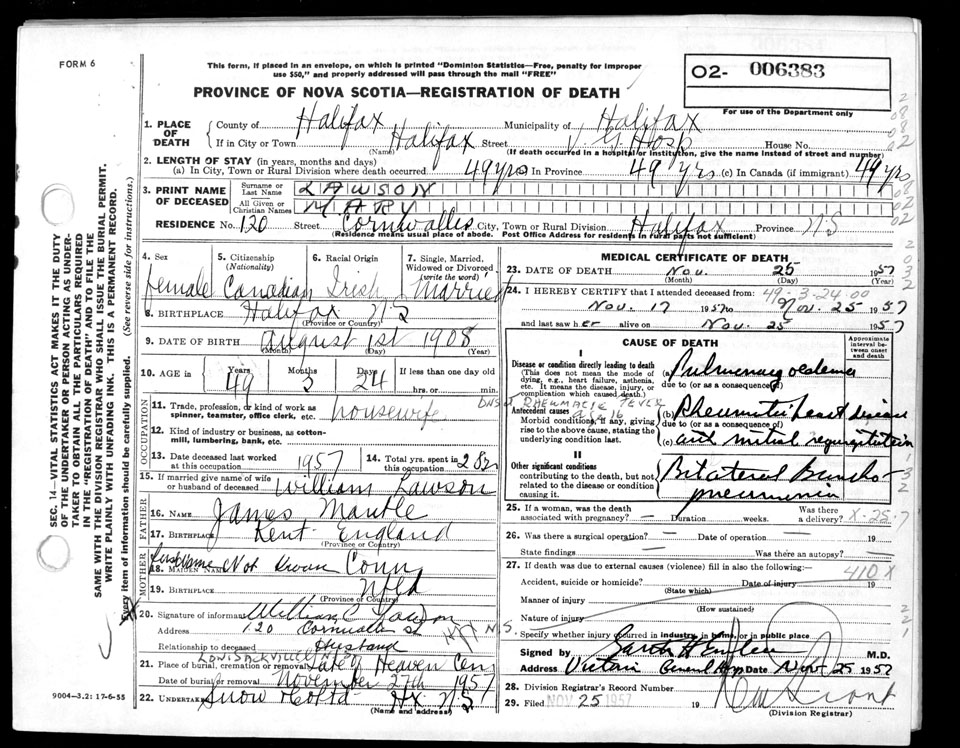 FORM 6
This form, if placed in an envelope, on which is printed "Dominion Statistics—Free, penalty for improper
use $50," and properly addressed will pass through the mail "FREE"
O2- 006383
PROVINCE OF NOVA SCOTIA—REGISTRATION OF DEATH
For use of the Department only
1. PLACE OF DEATH County of Halifax Municipality of Halifax
If in City or Town Halifax Street V. G. Hosp House No.
(Name) (If death occurred in a hospital or institution, give the name instead of street and number)
2. LENGTH OF STAY (in years, months and days)
(a) In City, Town or Rural Division where death occurred. 49 yrs In Province 49 yrs (c) In Canada (if immigrant) 49 yrs
3. PRINT NAME OF DECEASED
Surname or Last Name LAWSON
All Given or Christian Names MARY
RESIDENCE No. 120 Street Cornwallis City, Town or Rural Division Halifax Province NS
(Residence means usual place of abode. Post Office Address for residents in rural parts not sufficient)
4. Sex 5. Citizenship (Nationality) 6. Racial Origin 7. Single, Married, Widowed or Divorced (write the word)
female Canadian Irish Married
8. BIRTHPLACE Halifax N.S
(Province or Country)
9. DATE OF BIRTH August 1st 1908
(Month) (Day) (Year)
10. AGE in Years Months Days If less than one day
49 3 24 hrs. or min.
OCCUPATION
11. Trade, profession, or kind of work as spinner, teamster, office clerk, etc. housewife
12. Kind of industry or business, as cotton-mill, lumbering, bank, etc.
13. Date deceased last worked at this occupation 1957 14. Total yrs. spent in this occupation 28
15. If married give name of wife or husband of deceased William Lawson
FATHER
16. NAME James Mantle
17. BIRTHPLACE Kent England
(Province or Country)
MOTHER
18. MAIDEN NAME Not Known Conn
19. BIRTHPLACE Nfld
(Province or Country)
20. Signature of informant William C Lawson
Address 120 Cornwallis St Hfx N.S.
Relationship to deceased Husband
21. Place of burial, cremation or removal Gate of Heaven Cem
LOWER SACKVILLE
Date of burial or removal November 27th 1957
22. UNDERTAKER Snow & Co Ltd Hx N.S
(Name and address)
MEDICAL CERTIFICATE OF DEATH
23. DATE OF DEATH Nov. 25 1957
(Month) (Day) (Year)
49-3-24-00
24. I HEREBY CERTIFY that I attended deceased from:
Nov. 17 1957 to Nov. 25 1957
and last saw her alive on Nov. 25 1957
CAUSE OF DEATH
Approximate interval between onset and death
I
Disease or condition directly leading to death
(This does not mean the mode of dying, e.g., heart failure, asthenia, etc. It means the disease, injury, or complication which caused death.)
(a) Pulmonary oedema
due to (or as a consequence of)
RHEUMATIC FEVER
Antecedent causes
Morbid conditions, if any, giving rise to the above cause, stating the underlying condition last.
(b) Rheumatic heart disease
due to (or as a consequence of)
(c) with mitral regurgitation
II
Other significant conditions
contributing to the death, but not related to the disease or condition causing it.
Bilateral Broncho-
pneumonia
25. If a woman, was the death associated with pregnancy? — Duration weeks. Was there a delivery? X-25-7
26. Was there a surgical operation? — Date of operation 19
State findings — Was there an autopsy? —
27. If death was due to external causes (violence) fill in also the following:— 410X
Accident, suicide or homicide? Date of injury 19
(State which)
Manner of injury
(How sustained)
Nature of injury
Specify whether injury occurred in industry, in home, or in public place.
Signed by M.D.
Address Victoria General Hosp Date Nov. 25 1957
28. Division Registrar's Record Number
29. Filed NOV 25 1957 19
(Division Registrar)
SEC. 14—VITAL STATISTICS ACT MAKES IT THE DUTY
OF THE UNDERTAKER OR PERSON ACTING AS UNDER-
TAKER TO OBTAIN ALL THE PARTICULARS REQUIRED
IN THE "REGISTRATION OF DEATH" AND TO FILE THE
SAME WITH THE DIVISION REGISTRAR WHO SHALL ISSUE THE BURIAL PERMIT.
WRITE PLAINLY WITH UNFADING INK. THIS IS A PERMANENT RECORD.
Every item of information should be carefully supplied. (See reverse side for instructions.)
9004-3.2: 17-6-55